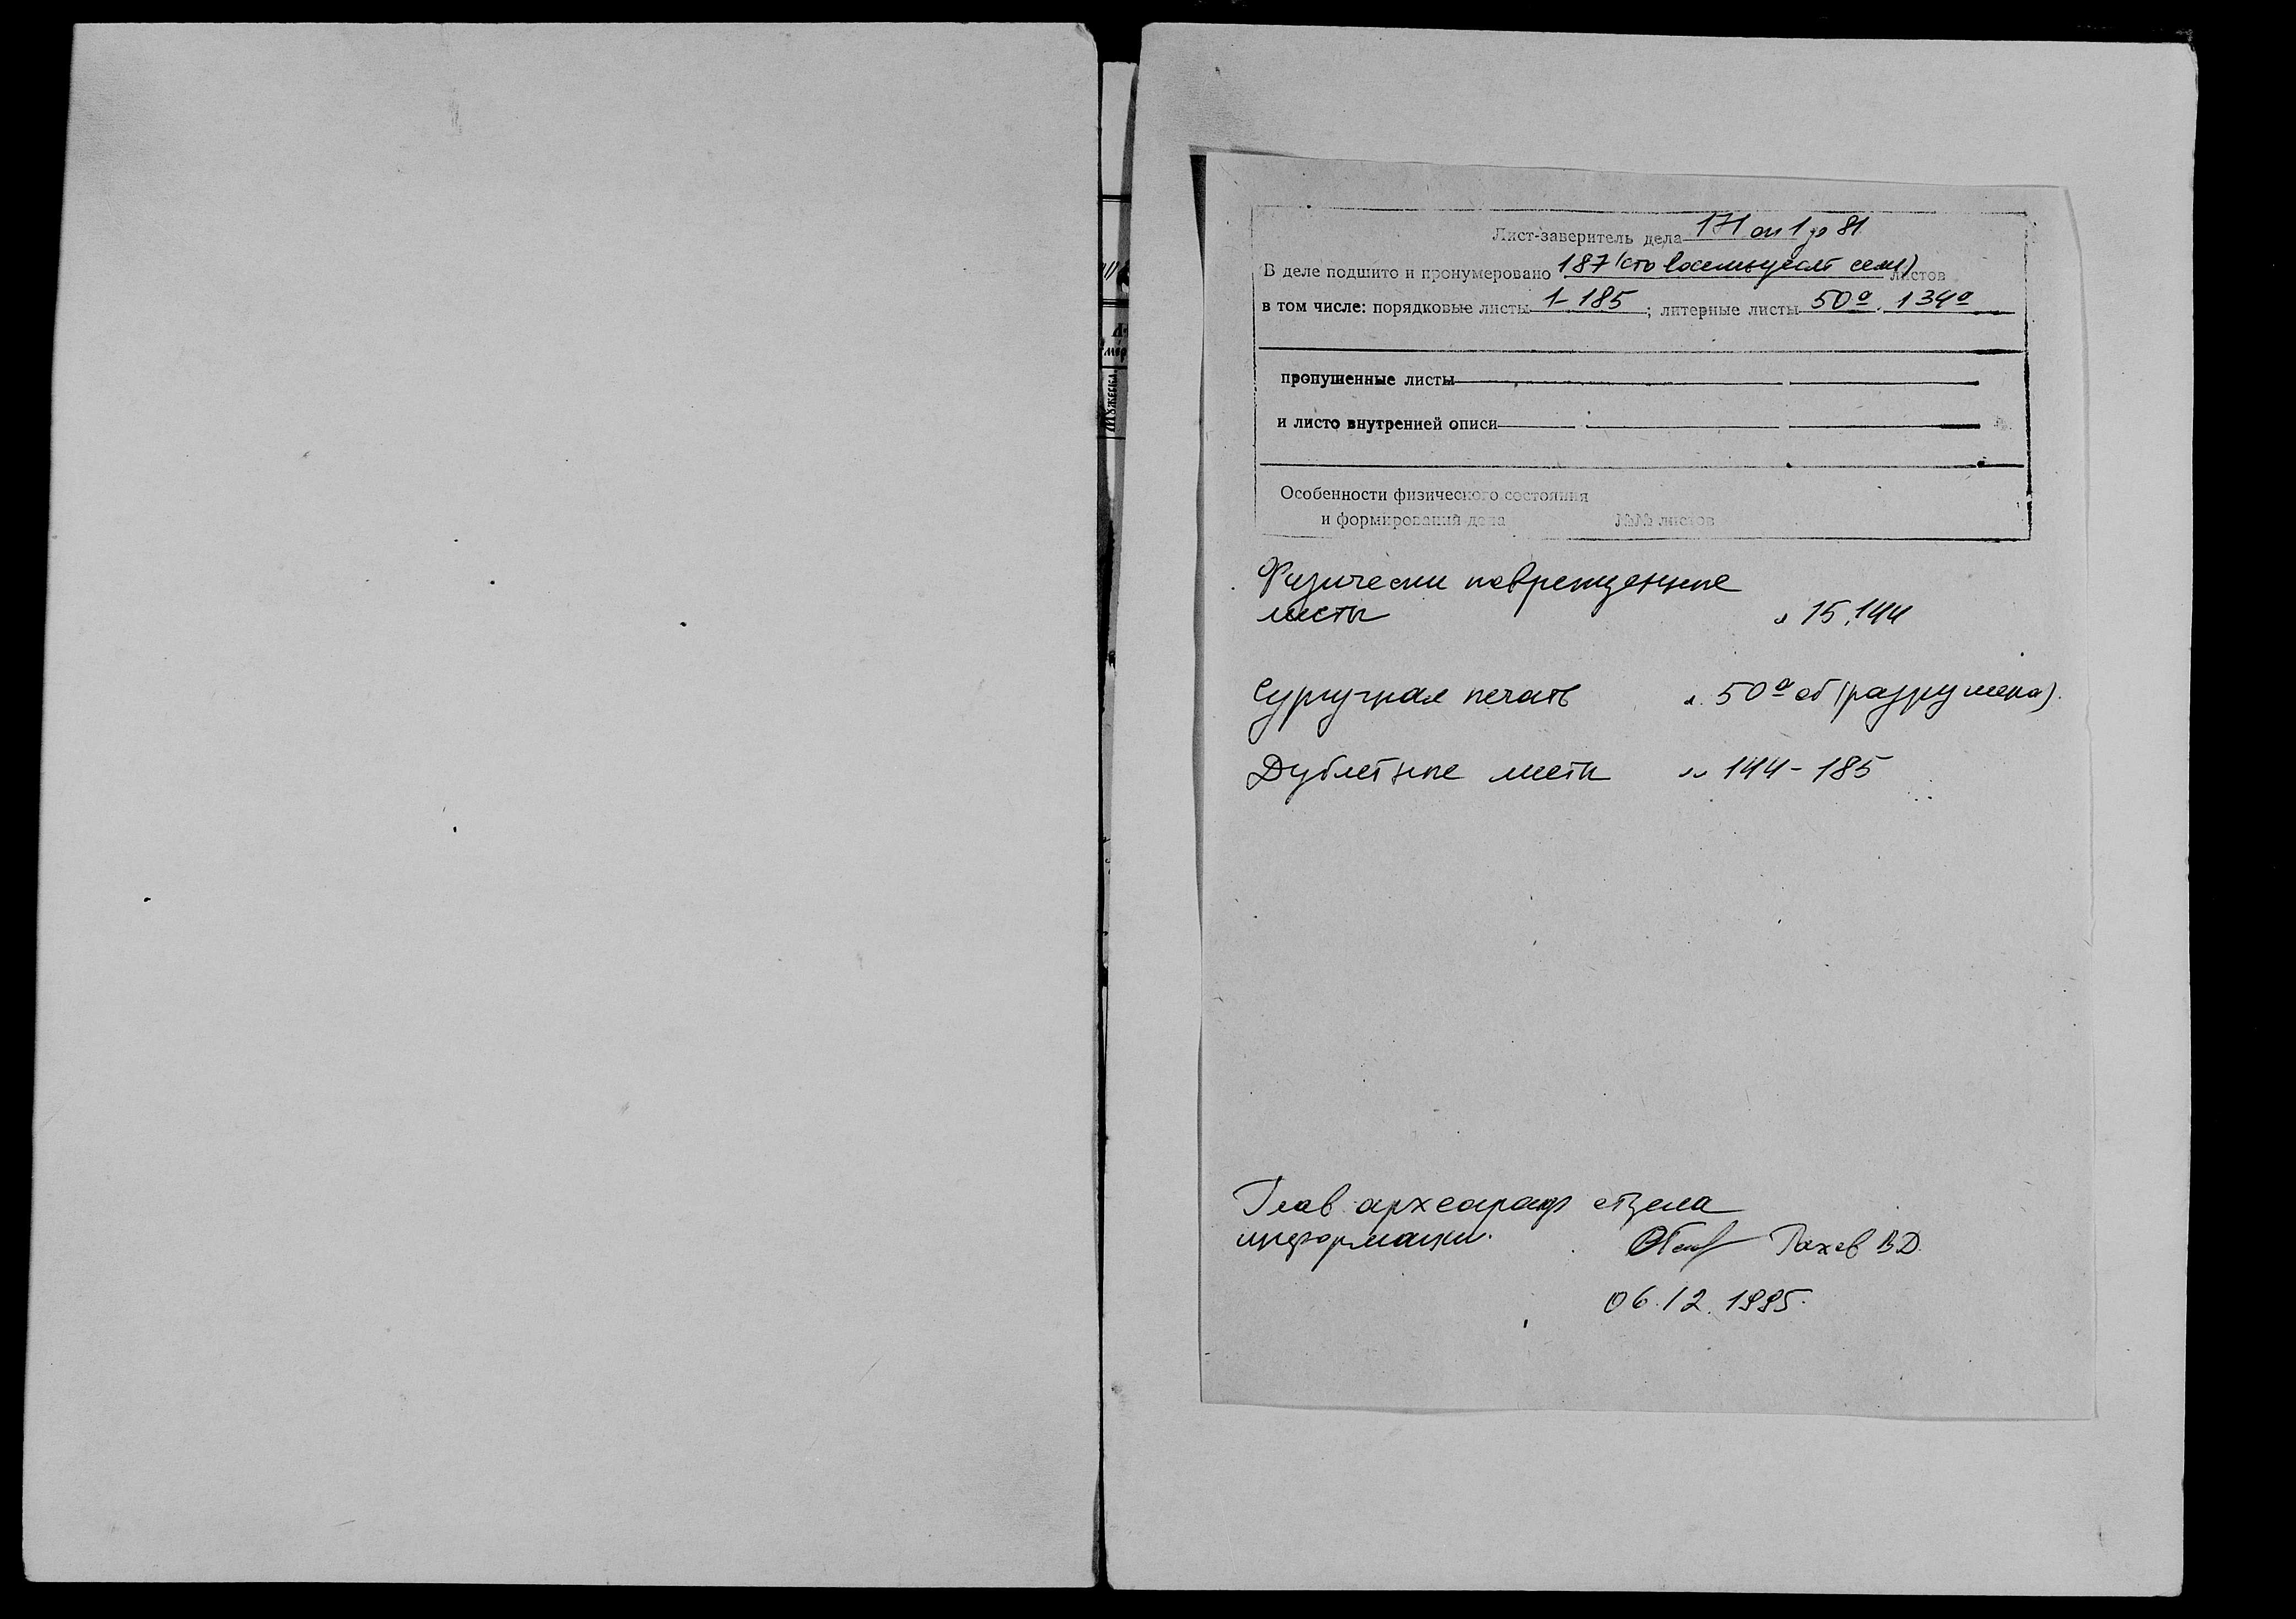 Лист-заверитель дела 171 оп 1 д 81
В деле подшито и пронумеровано 187 (сто восемьдесят семь) листов
в том числе: порядковые листы 1-185; литерные листы 50а, 134а
пропушенные листы
и листо внутренней описи
Особенности физического состояния
и формирований дела №№ листов
Физически поврежденные
листы л 15, 144
Сургучная печать л. 50а об (разрушена).
Дублетные листы лл 144-185
Глав. археограф отдела
информации. В Д.
06.12.1995.